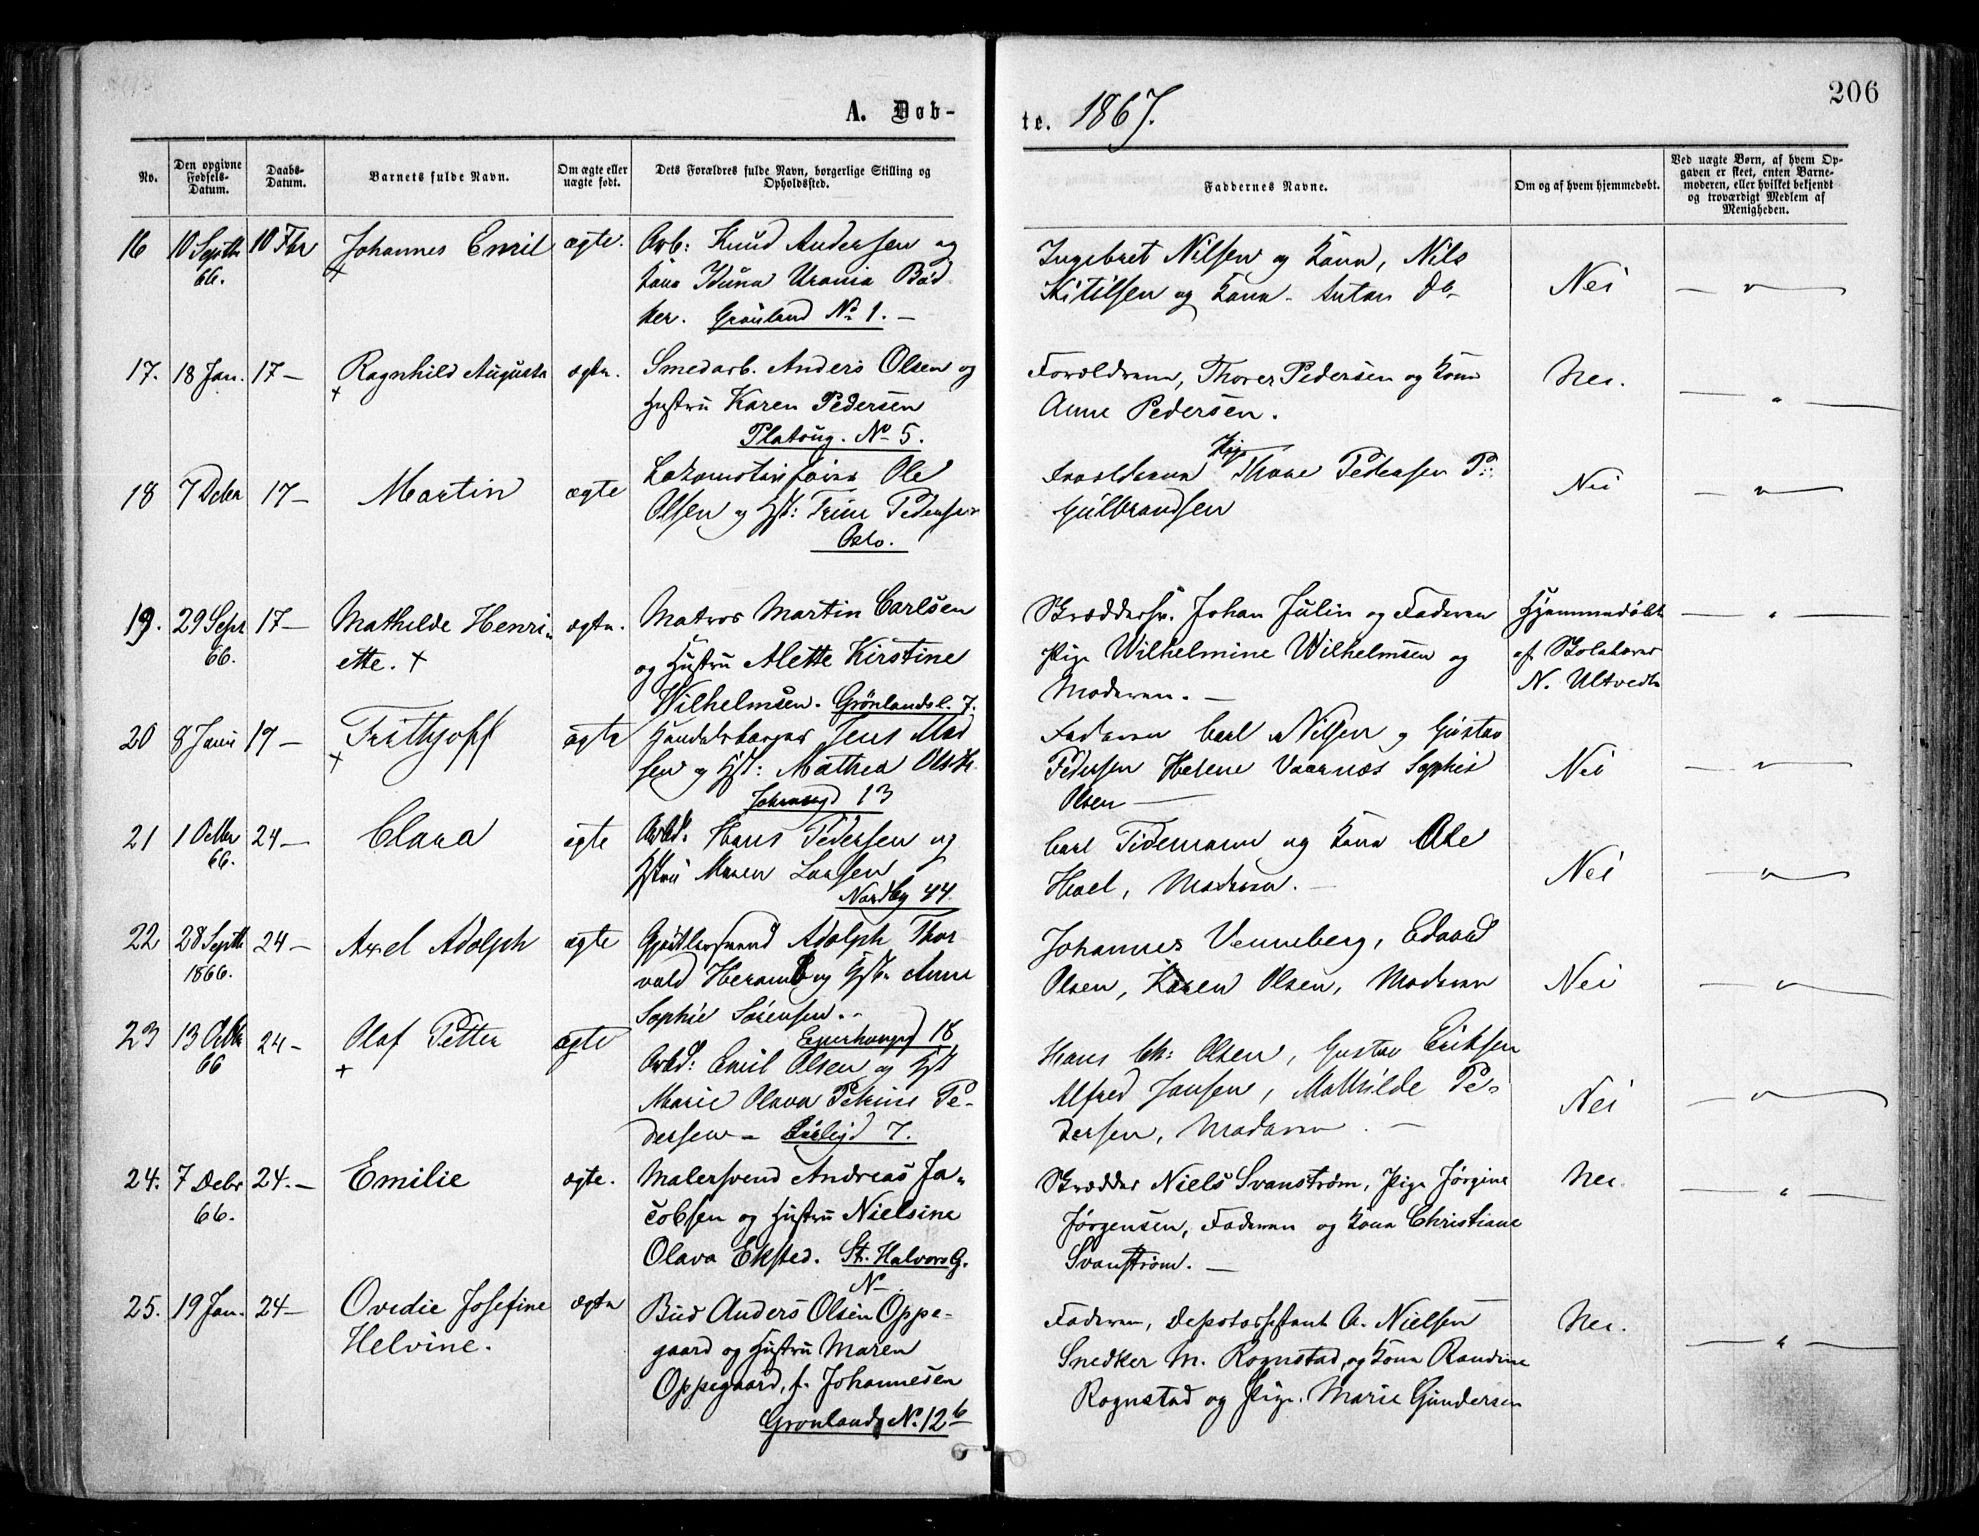 206
A. Døb-
te. 1867.
No.
Den opgivne
Fødsels-
Datum.
Daabs-
Datum.
Barnets fulde Navn.
Om ægte eller
uægte født.
Dets Forældres fulde Navn, borgerlige Stilling og
Opholdssted.
Faddernes Navne.
Om og af hvem hjemmedøbt.
Ved uægte Børn, af hvem Op-
gaven er skeet, enten Barne-
moderen, eller hvilket bekjendt
og troværdigt Medlem af
Menigheden.
16
10 Septb
66.
10 Fbr
Johannes Emil
+
ægte.
Arb: Knud Andersen og
Kone Iduna Urania Bød
ker. Grønland No 1. —
Ingebret Nilsen og Kone, Nils
Kitilsen og Kone. Anton do-
Nei
— " —
17.
18 Jan.
17 —
Ragnhild Augusta
+
ægte.
Smedarb. Anders Olsen og
Hustru Karen Pedersen
Platoug. No 5.
Forældrene, Thorer Pedersen og Kone
Anne Pedersen.
Nei.
— " —
18
7 Decbr
17 —
Martin
ægte
Lokomotivfører Ole
Olsen og Hst: Trine Pedersen
Oslo.
Forældrene Pige Thone Pedersen P:
Gulbrandsen
Nei
— " —
19.
29 Sept
66.
17 —
Mathilde Henri-
ette. +
ægte.
Matros Martin Carlsen
og Hustru Alette Kirstine
Wilhelmsen. Grønlandsl. 7.
Skræddersv. Johan Julin og Faderen
Pige Wilhelmine Wilhelmsen og
Moderen. —
Hjemmedøbt
af Skolelærer
N. Ultvedt
— " —
20
8 Janr
19 —
Frithjoff
+
ægte
Handelsborger Jens Mad
sen og Hst: Mathea Olsdt.
13
Faderen Carl Nilsen og Gustav
Pedersen Helene Vaarnæs Sophie
Olsen —
Nei
— " —
21
1 Octbr
66.
24 —
Clara
ægte
Arbd: Hans Pedersen og
Hstru Maren Larsen
Nordby 44.
Carl Tidemann og Kone Ole
Hoel, Moderen. —
Nei
— " —
22
28 Septb
1866.
24 —
Axel Adolph
ægte
Gjørtlersvend Adolph Thor
vald Heramb og Hst. Anne
Sophie Sørensen. —
18
Johannes Venneberg, Edvard
Olsen, Karen Olsen, Moderen
Nei
— " —
23
13 Octbr
66
24 —
Olaf Petter
+
ægte
Arbd: Emil Olsen og Hst
Marie Olava Petrine Pe-
dersen — 7.
Hans Ch: Olsen, Gustav Eriksen
Alfred Jansen, Mathilde Pe-
dersen, Moderen. —
Nei
— " —
24.
7 Debr
66.
24. —
Emilie
ægte.
Malersvend Andreas Ja-
cobsen og Hustru Nielsine
Olava Eksted. St. Halvors G.
N—
Skrædder Niels Svanstrøm, Pige Jørgine
Jørgensen, Faderen og Kone Christiane
Svanstrøm. —
Nei.
— " —
25.
19 Jan.
24 —
Ovedie Josefine
Helvine.
ægte
Bud Anders Olsen Oppe-
gaard og Hustru Maren
Oppegaard, f. Johannesen
Grønlands No. 12 b
Faderen, Depotassistent A. Nielsen
Snedker M. Rognstad, og Kone Randine
Rognstad og Pige. Marie Gundersen
Nei.
— " —